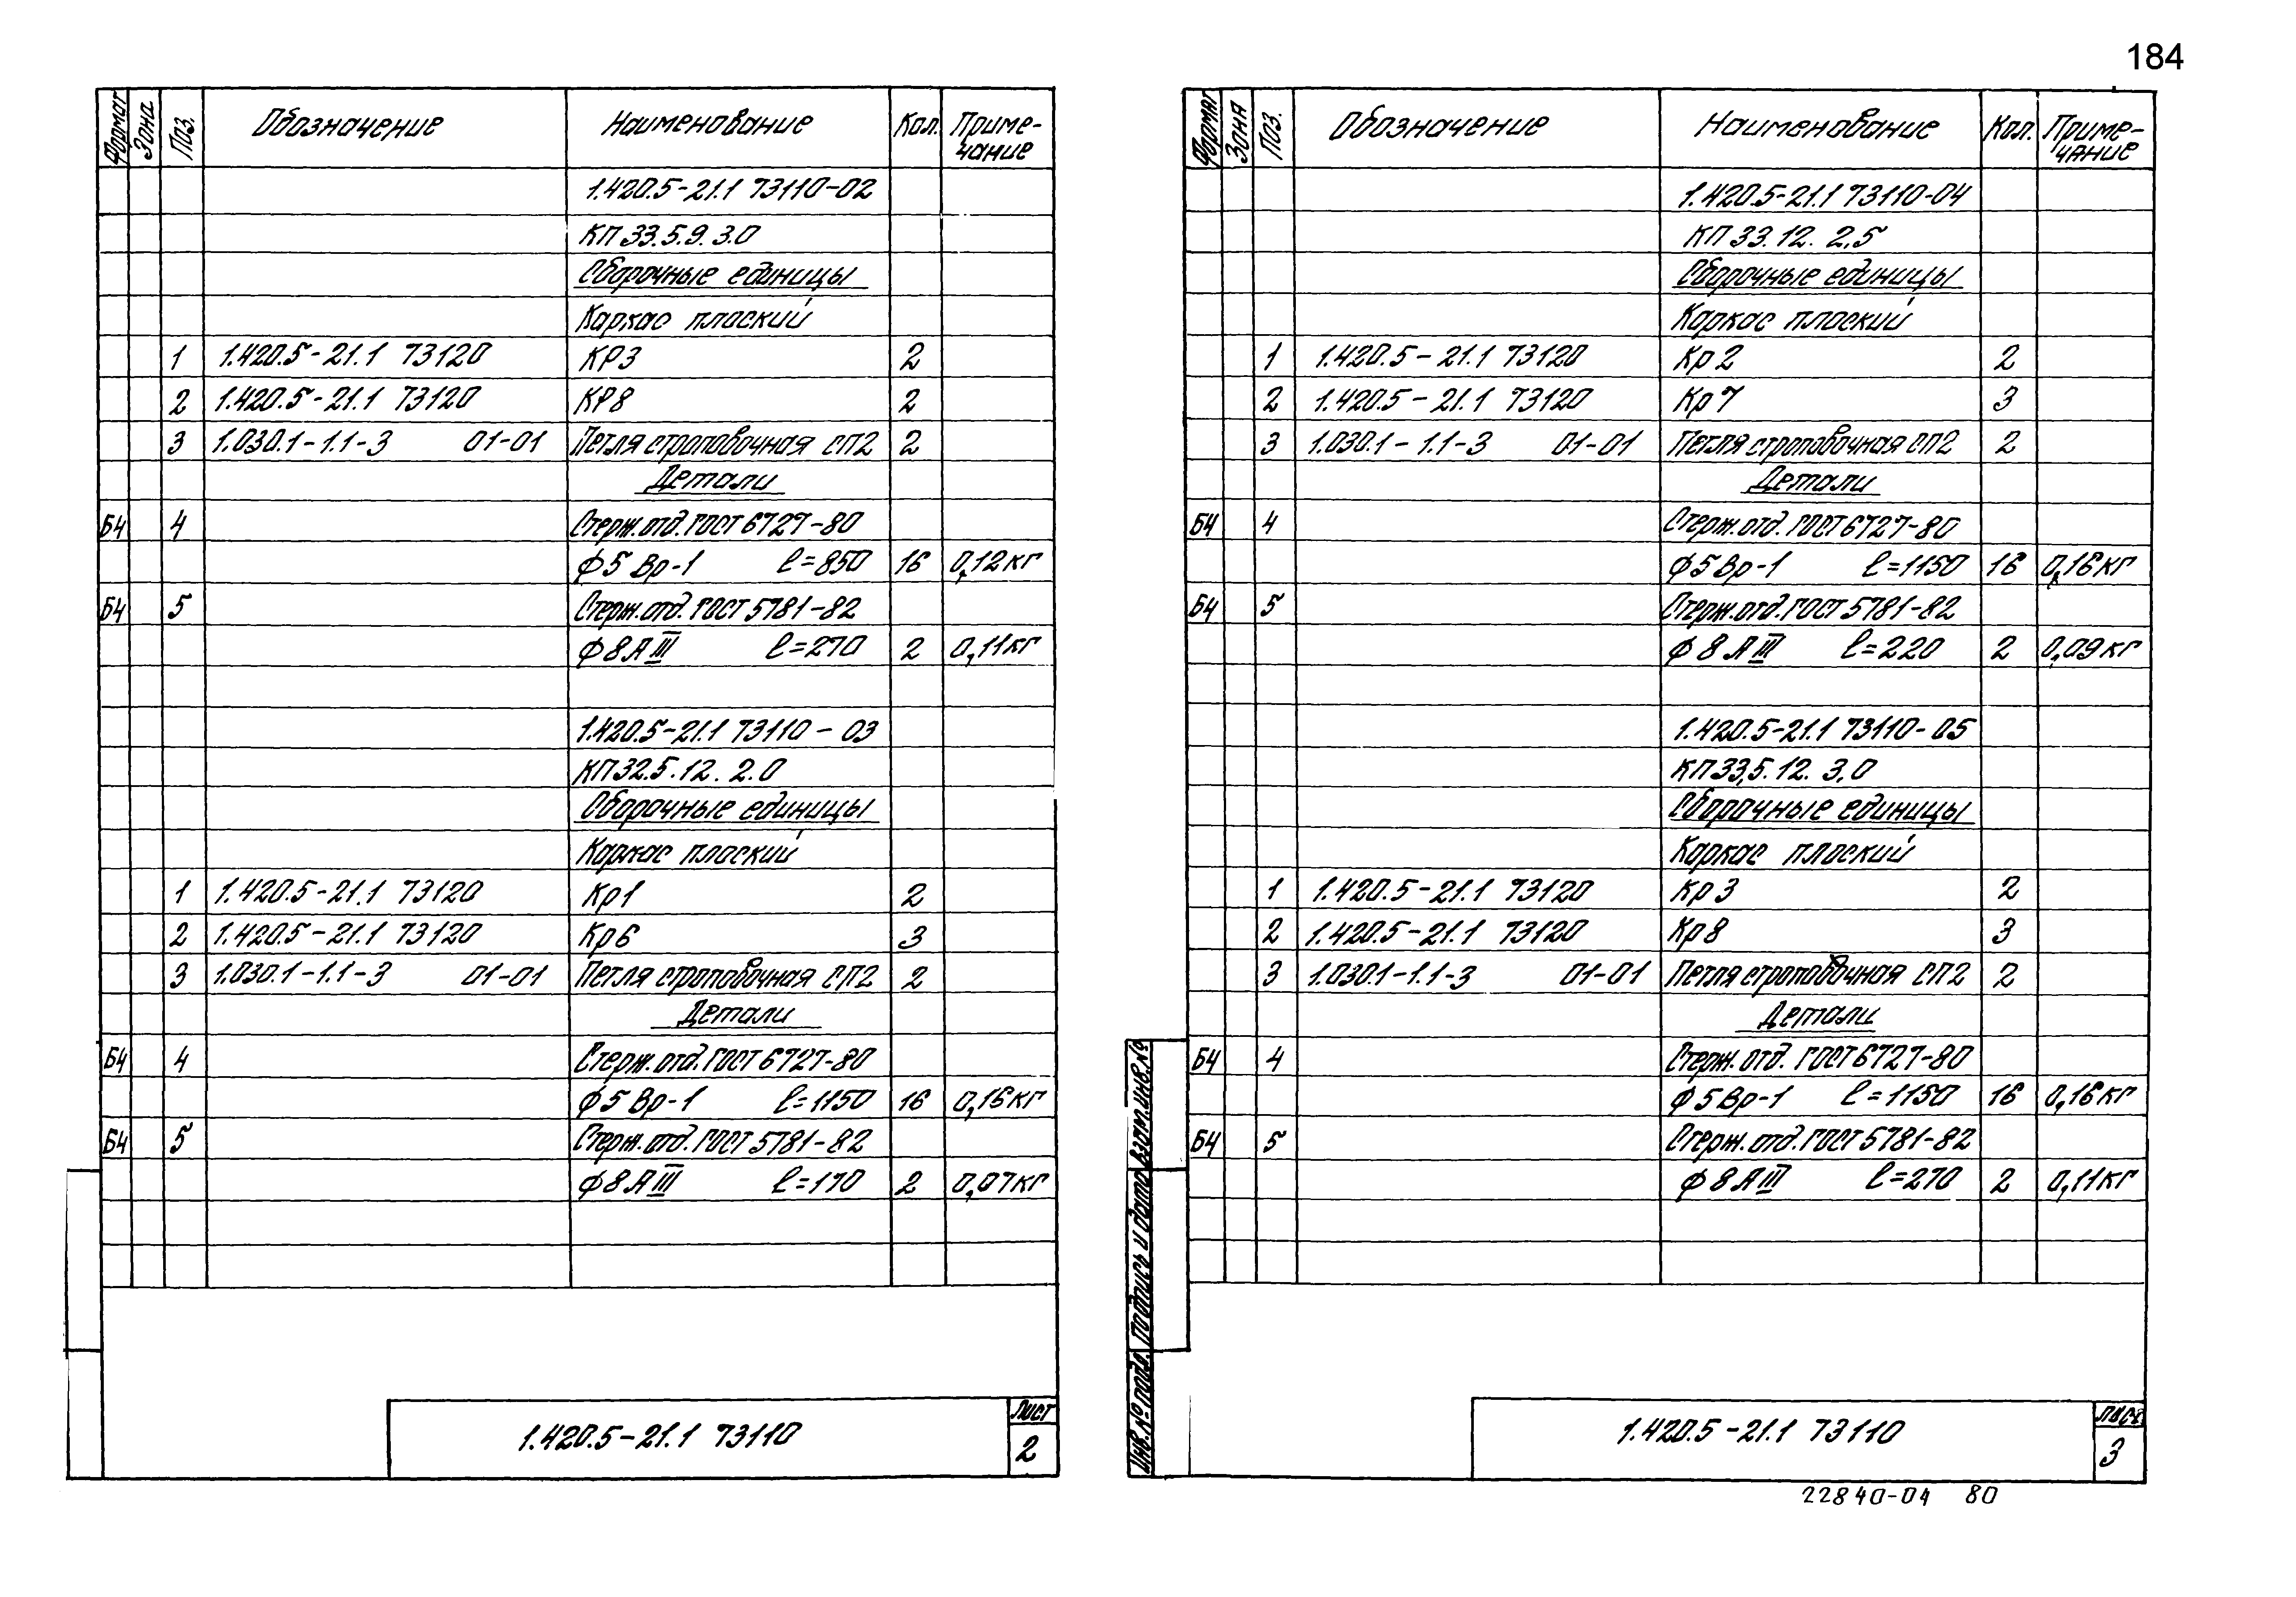 184
Формат Зона Поз. Обозначение Наименование Кол. Приме-
чание
1.420.5-21.1 73110-02
КП 33.5.9.3.0
Сборочные единицы
Каркас плоский
1 1.420.5-21.1 73120 КР3 2
2 1.420.5-21.1 73120 КР8 2
3 1.030.1-1.1-3 01-01 Петля строповочная СП2 2
Детали
Б4 4 Стерж.отд.ГОСТ 6727-80
Ф5 Вр-1 ℓ=850 16 0,12кг
Б4 5 Стерж.отд.ГОСТ 5781-82
Ф8АIII ℓ=270 2 0,11кг
1.420.5-21.1 73110-03
КП32.5.12.2.0
Сборочные единицы
Каркас плоский
1 1.420.5-21.1 73120 Кр1 2
2 1.420.5-21.1 73120 Кр6 3
3 1.030.1-1.1-3 01-01 Петля строповочная СП2 2
Детали
Б4 4 Стерж.отд.ГОСТ 6727-80
Ф5 Вр-1 ℓ=1150 16 0,16кг
Б4 5 Стерж.отд.ГОСТ 5781-82
Ф8АIII ℓ=170 2 0,07кг
1.420.5-21.1 73110
Лист
2
Формат Зона Поз. Обозначение Наименование Кол. Приме-
чание
1.420.5-21.1 73110-04
КП 33.12.2,5
Сборочные единицы
Каркас плоский
1 1.420.5-21.1 73120 Кр2 2
2 1.420.5-21.1 73120 Кр7 3
3 1.030.1-1.1-3 01-01 Петля строповочная СП2 2
Детали
Б4 4 Стерж.отд.ГОСТ 6727-80
Ф5Вр-1 ℓ=1150 16 0,16кг
Б4 5 Стерж.отд.ГОСТ 5781-82
Ф8АIII ℓ=220 2 0,09кг
1.420.5-21.1 73110-05
КП33,5.12.3,0
Сборочные единицы
Каркас плоский
1 1.420.5-21.1 73120 Кр3 2
2 1.420.5-21.1 73120 Кр8 3
3 1.030.1-1.1-3 01-01 Петля строповочная СП2 2
Детали
Б4 4 Стерж.отд.ГОСТ 6727-80
Ф5Вр-1 ℓ=1150 16 0,16кг
Б4 5 Стерж.отд.ГОСТ 5781-82
Ф8АIII ℓ=270 2 0,11кг
Инв.№ подл. Подпись и дата Взам.инв.№
1.420.5-21.1 73110
Лист
3
22840-04 80